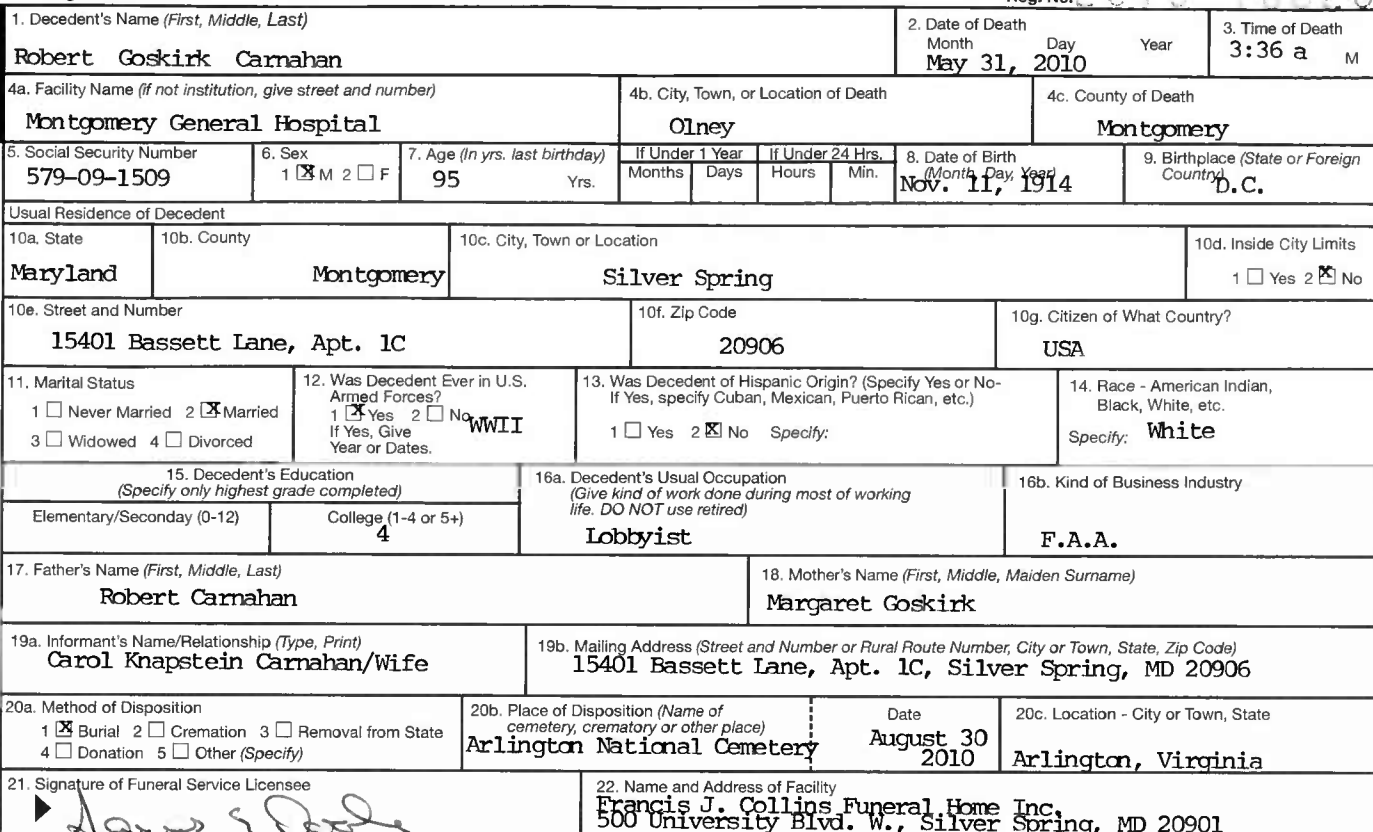 Reg. No.
1. Decedent's Name (First, Middle, Last)
Robert Goskirk Carnahan
2. Date of Death
Month Day Year
May 31, 2010
3. Time of Death
3:36 a M
4a. Facility Name (if not institution, give street and number)
Montgomery General Hospital
4b. City, Town, or Location of Death
Olney
4c. County of Death
Montgomery
5. Social Security Number
579-09-1509
6. Sex
1 ☒ M 2 ☐ F
7. Age (In yrs. last birthday)
95 Yrs.
If Under 1 Year
Months Days
If Under 24 Hrs.
Hours Min.
8. Date of Birth
(Month, Day, Year)
Nov. 11, 1914
9. Birthplace (State or Foreign
Country)
D.C.
Usual Residence of Decedent
10a. State
Maryland
10b. County
Montgomery
10c. City, Town or Location
Silver Spring
10d. Inside City Limits
1 ☐ Yes 2 ☒ No
10e. Street and Number
15401 Bassett Lane, Apt. 1C
10f. Zip Code
20906
10g. Citizen of What Country?
USA
11. Marital Status
1 ☐ Never Married 2 ☒ Married
3 ☐ Widowed 4 ☐ Divorced
12. Was Decedent Ever in U.S.
Armed Forces?
1 ☒ Yes 2 ☐ No
WWII
If Yes, Give
Year or Dates.
13. Was Decedent of Hispanic Origin? (Specify Yes or No-
If Yes, specify Cuban, Mexican, Puerto Rican, etc.)
1 ☐ Yes 2 ☒ No Specify:
14. Race - American Indian,
Black, White, etc.
Specify: White
15. Decedent's Education
(Specify only highest grade completed)
Elementary/Seconday (0-12)
College (1-4 or 5+)
4
16a. Decedent's Usual Occupation
(Give kind of work done during most of working
life. DO NOT use retired)
Lobbyist
16b. Kind of Business Industry
F.A.A.
17. Father's Name (First, Middle, Last)
Robert Carnahan
18. Mother's Name (First, Middle, Maiden Surname)
Margaret Goskirk
19a. Informant's Name/Relationship (Type, Print)
Carol Knapstein Carnahan/Wife
19b. Mailing Address (Street and Number or Rural Route Number, City or Town, State, Zip Code)
15401 Bassett Lane, Apt. 1C, Silver Spring, MD 20906
20a. Method of Disposition
1 ☒ Burial 2 ☐ Cremation 3 ☐ Removal from State
4 ☐ Donation 5 ☐ Other (Specify)
20b. Place of Disposition (Name of
cemetery, crematory or other place)
Arlington National Cemetery
Date
August 30
2010
20c. Location - City or Town, State
Arlington, Virginia
21. Signature of Funeral Service Licensee
22. Name and Address of Facility
Francis J. Collins Funeral Home Inc.
500 University Blvd. W., Silver Spring, MD 20901